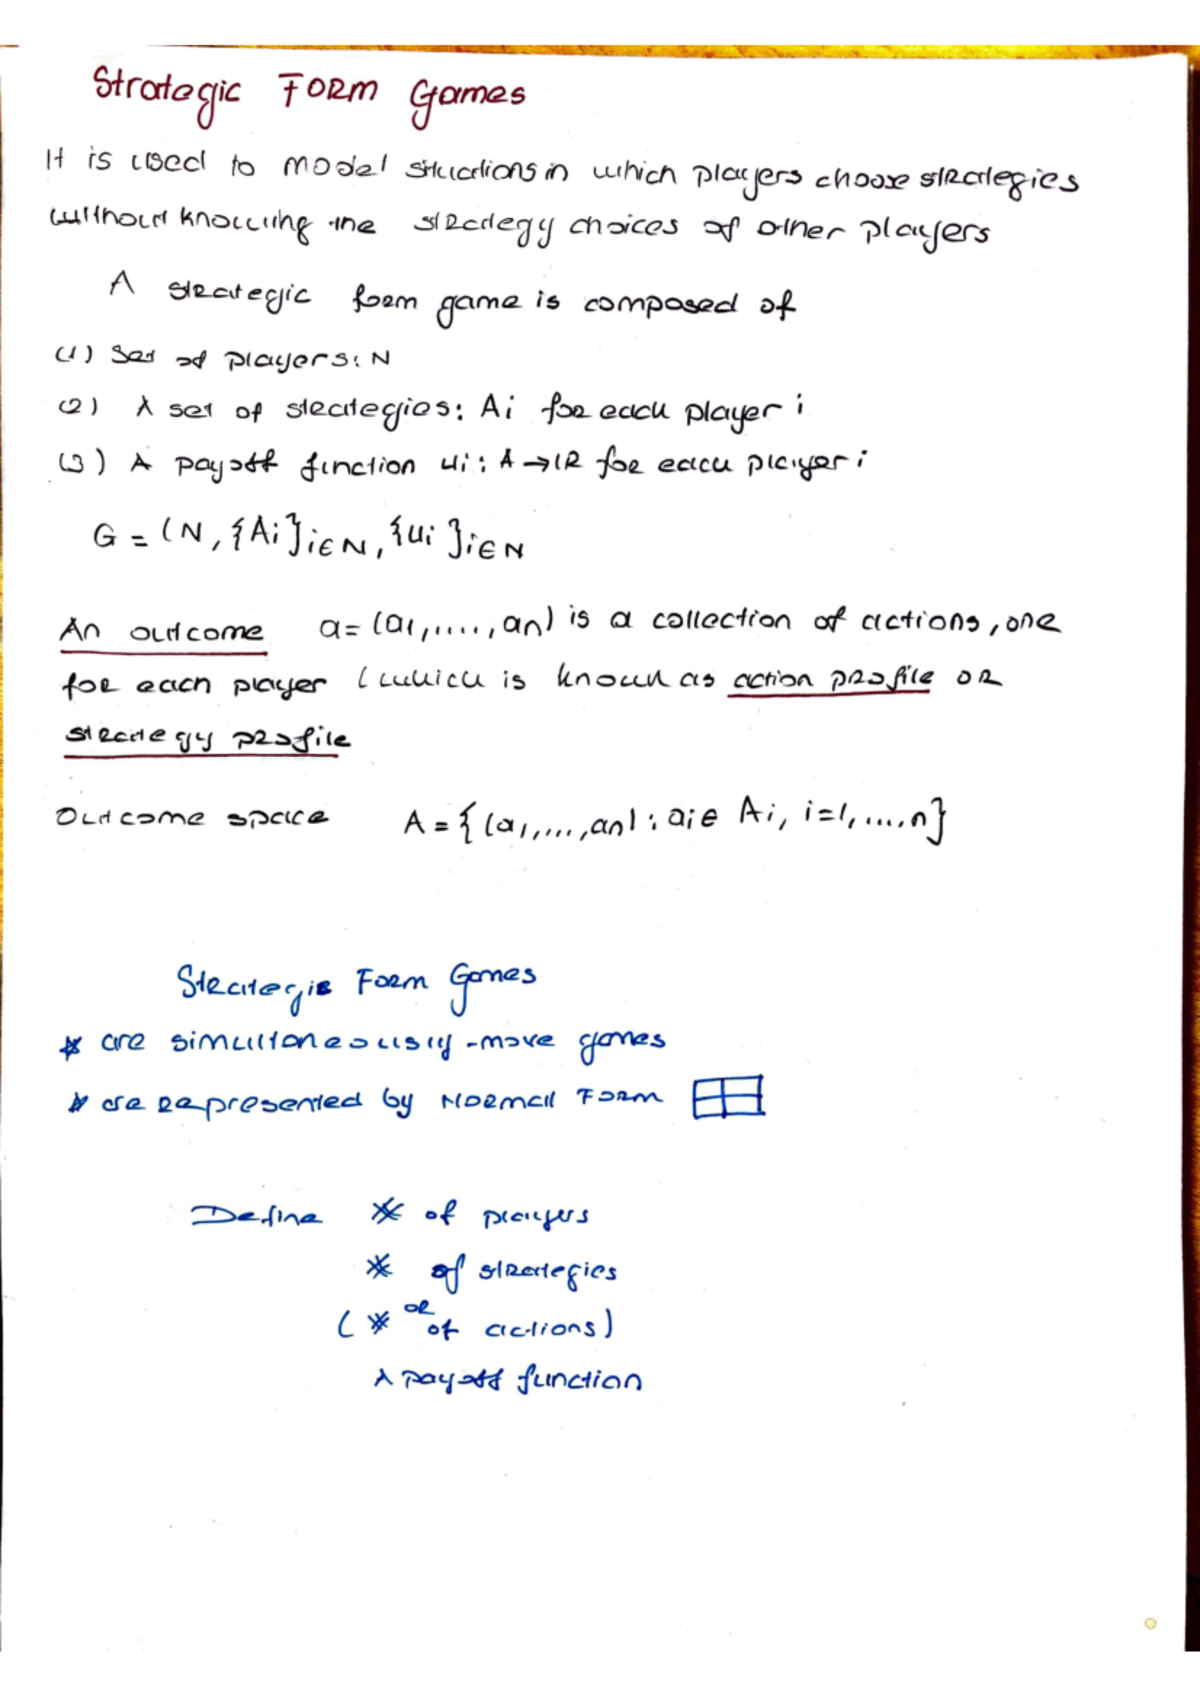 Strategic Form Games
It is used to model situations in which players choose strategies
without knowing the strategy choices of other players
A strategic form game is composed of
(1) Set of players: N
(2) A set of strategies: Ai for each player i
(3) A payoff function ui: A → IR for each player i
G = (N, {Ai}i∈N, {ui}i∈N
An outcome a = (a1,....,an) is a collection of actions, one
for each player (which is known as action profile or
strategy profile
Outcome space A = {(a1,...,an) : ai∈ Ai, i=1,...,n}
Strategic Form Games
* are simultaneously-move games
* are represented by Normal Form
Define * of players
* of strategies
(* or of actions)
A payoff function